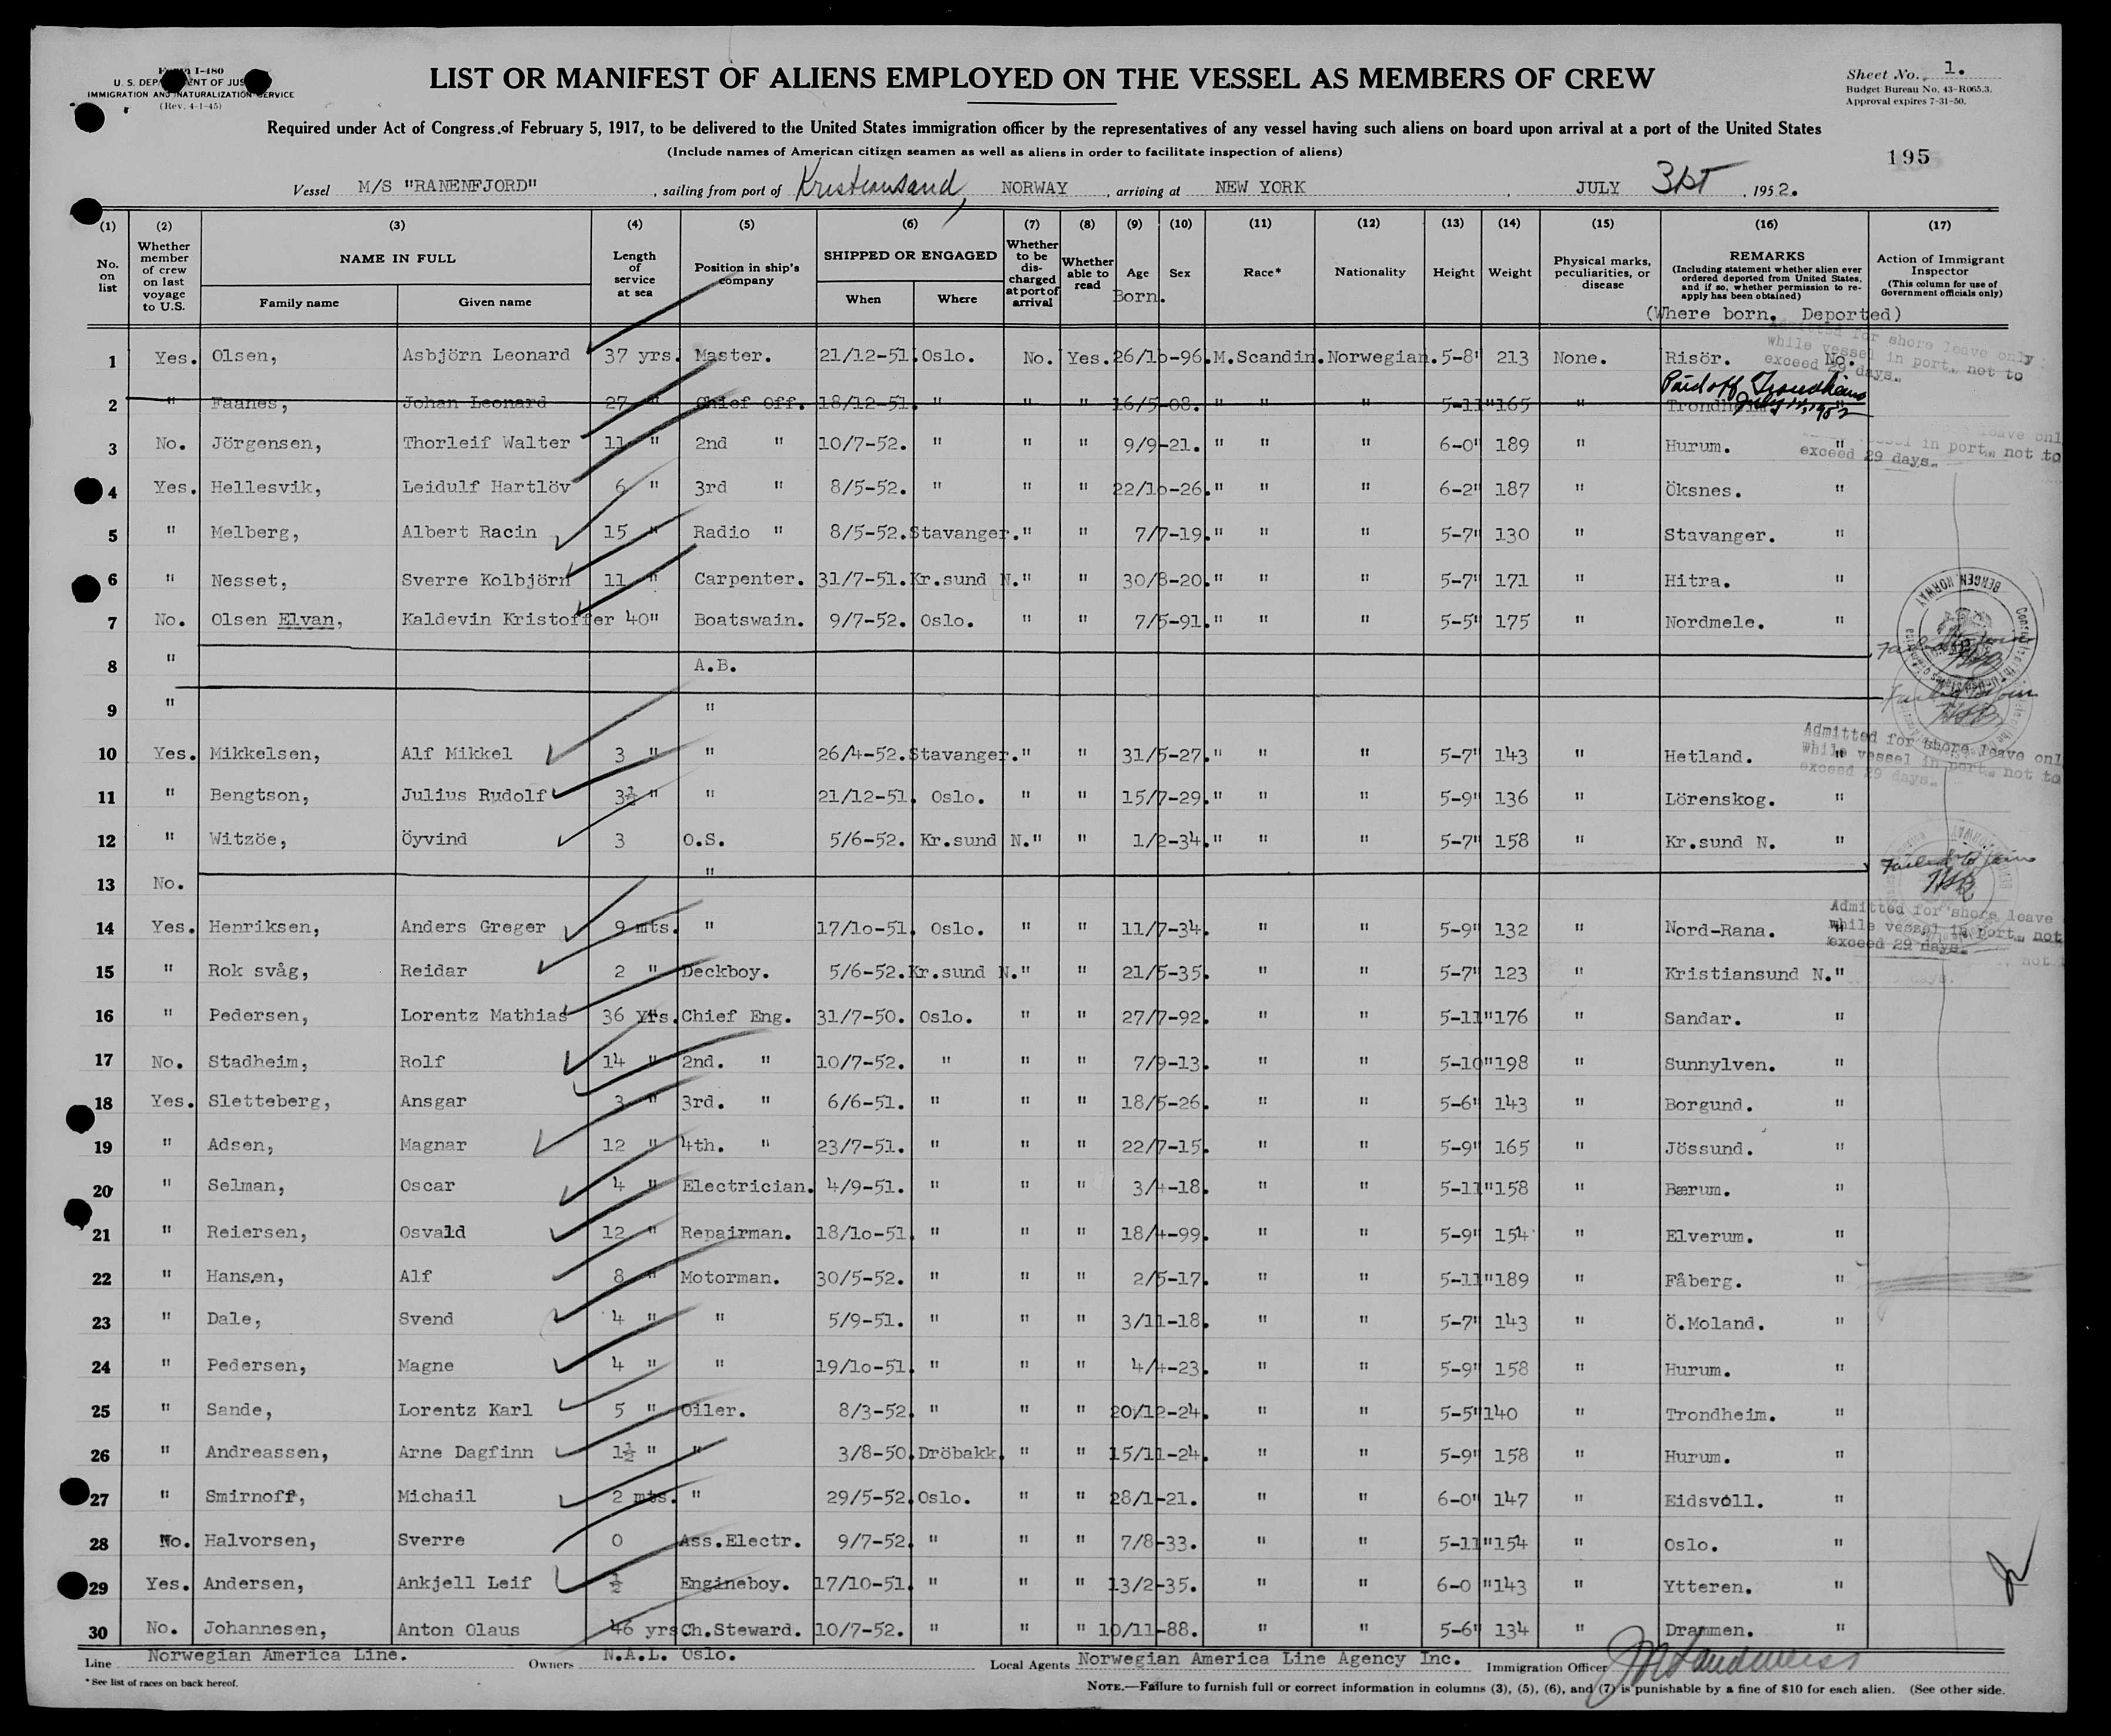 Form I-480
U. S. DEPARTMENT OF JUSTICE
IMMIGRATION AND NATURALIZATION SERVICE
(Rev. 4-1-45)
LIST OR MANIFEST OF ALIENS EMPLOYED ON THE VESSEL AS MEMBERS OF CREW
Sheet No. 1.
Budget Bureau No. 43-R065.3.
Approval expires 7-31-50.
Required under Act of Congress of February 5, 1917, to be delivered to the United States immigration officer by the representatives of any vessel having such aliens on board upon arrival at a port of the United States
(Include names of American citizen seamen as well as aliens in order to facilitate inspection of aliens)
195
Vessel M/S "RANENFJORD", sailing from port of Kristiansand, NORWAY, arriving at NEW YORK, JULY 31st, 1952.
(1) (2) (3) (4) (5) (6) (7) (8) (9) (10) (11) (12) (13) (14) (15) (16) (17)
No. on list
Whether member of crew on last voyage to U.S.
NAME IN FULL
Family name
Given name
Length of service at sea
Position in ship's company
SHIPPED OR ENGAGED
When
Where
Whether to be discharged at port of arrival
Whether able to read
Age
Born.
Sex
Race*
Nationality
Height
Weight
Physical marks, peculiarities, or disease
REMARKS
(Including statement whether alien ever ordered deported from United States, and if so, whether permission to reapply has been obtained)
(Where born. Deported)
Action of Immigrant Inspector
(This column for use of Government officials only)
1 Yes. Olsen, Asbjörn Leonard 37 yrs. Master. 21/12-51. Oslo. No. Yes. 26/10-96. M. Scandin. Norwegian. 5-8" 213 None. Risör. No.
Admitted for shore leave only while vessel in port, not to exceed 29 days.
2 " Faanes, Johan Leonard 27 " Chief Off. 18/12-51. " " " 16/5-08. " " " 5-11" 165 " Trondheim "
Paid off Trondheim July 14, 1952
3 No. Jörgensen, Thorleif Walter 11 " 2nd " 10/7-52. " " " 9/9-21. " " " 6-0" 189 " Hurum. "
leave onl
vessel in port, not to
exceed 29 days.
4 Yes. Hellesvik, Leidulf Hartlöv 6 " 3rd " 8/5-52. " " " 22/10-26. " " " 6-2" 187 " Öksnes. "
5 " Melberg, Albert Racin 15 " Radio " 8/5-52. Stavanger. " " 7/7-19. " " " 5-7" 130 " Stavanger. "
6 " Nesset, Sverre Kolbjörn 11 " Carpenter. 31/7-51. Kr.sund N. " " 30/8-20. " " " 5-7" 171 " Hitra. "
BERGEN NORWAY
7 No. Olsen Elvan, Kaldevin Kristoffer 40" Boatswain. 9/7-52. Oslo. " " 7/5-91. " " " 5-5" 175 " Nordmele. "
8 " A.B. Failed to join
9 " " Failed to join
10 Yes. Mikkelsen, Alf Mikkel 3 " " 26/4-52. Stavanger. " " 31/5-27. " " " 5-7" 143 " Hetland. "
Admitted for shore leave onl
while vessel in port, not to
exceed 29 days.
11 " Bengtson, Julius Rudolf 3½ " " 21/12-51. Oslo. " " 15/7-29. " " " 5-9" 136 " Lörenskog. "
12 " Witzöe, Öyvind 3 O.S. 5/6-52. Kr.sund N. " " 1/2-34. " " " 5-7" 158 " Kr.sund N. "
13 No. " Failed to join
14 Yes. Henriksen, Anders Greger 9 mts. " 17/10-51. Oslo. " " 11/7-34. " " 5-9" 132 " Nord-Rana. "
Admitted for shore leave
while vessel in port, not
exceed 29 days.
15 " Rok svåg, Reidar 2 " Deckboy. 5/6-52. Kr.sund N. " " 21/5-35. " " 5-7" 123 " Kristiansund N. "
16 " Pedersen, Lorentz Mathias 36 Yrs. Chief Eng. 31/7-50. Oslo. " " 27/7-92. " " 5-11" 176 " Sandar. "
17 No. Stadheim, Rolf 14 " 2nd. " 10/7-52. " " " 7/9-13. " " 5-10" 198 " Sunnylven. "
18 Yes. Sletteberg, Ansgar 3 " 3rd. " 6/6-51. " " " 18/5-26. " " 5-6" 143 " Borgund. "
19 " Adsen, Magnar 12 " 4th. " 23/7-51. " " " 22/7-15. " " 5-9" 165 " Jössund. "
20 " Selman, Oscar 4 " Electrician. 4/9-51. " " " 3/4-18. " " 5-11" 158 " Bærum. "
21 " Reiersen, Osvald 12 " Repairman. 18/10-51. " " " 18/4-99. " " 5-9" 154 " Elverum. "
22 " Hansen, Alf 8 " Motorman. 30/5-52. " " " 2/5-17. " " 5-11" 189 " Fåberg. "
23 " Dale, Svend 4 " " 5/9-51. " " " 3/11-18. " " 5-7" 143 " Ö.Moland. "
24 " Pedersen, Magne 4 " " 19/10-51. " " " 4/4-23. " " 5-9" 158 " Hurum. "
25 " Sande, Lorentz Karl 5 " Oiler. 8/3-52. " " " 20/12-24. " " 5-5" 140 " Trondheim. "
26 " Andreassen, Arne Dagfinn 1½ " " 3/8-50. Dröbakk. " " 15/11-24. " " 5-9" 158 " Hurum. "
27 " Smirnoff, Michail 2 mts. " 29/5-52. Oslo. " " 28/1-21. " " 6-0" 147 " Eidsvoll. "
28 No. Halvorsen, Sverre 0 Ass.Electr. 9/7-52. " " " 7/8-33. " " 5-11" 154 " Oslo. "
29 Yes. Andersen, Ankjell Leif ½ Engineboy. 17/10-51. " " " 13/2-35. " " 6-0 " 143 " Ytteren. "
30 No. Johannesen, Anton Olaus 46 yrs Ch.Steward. 10/7-52. " " " 10/11-88. " " 5-6" 134 " Drammen. "
Line Norwegian America Line. Owners N.A.L. Oslo. Local Agents Norwegian America Line Agency Inc. Immigration Officer
* See list of races on back hereof.
NOTE.—Failure to furnish full or correct information in columns (3), (5), (6), and (7) is punishable by a fine of $10 for each alien. (See other side.